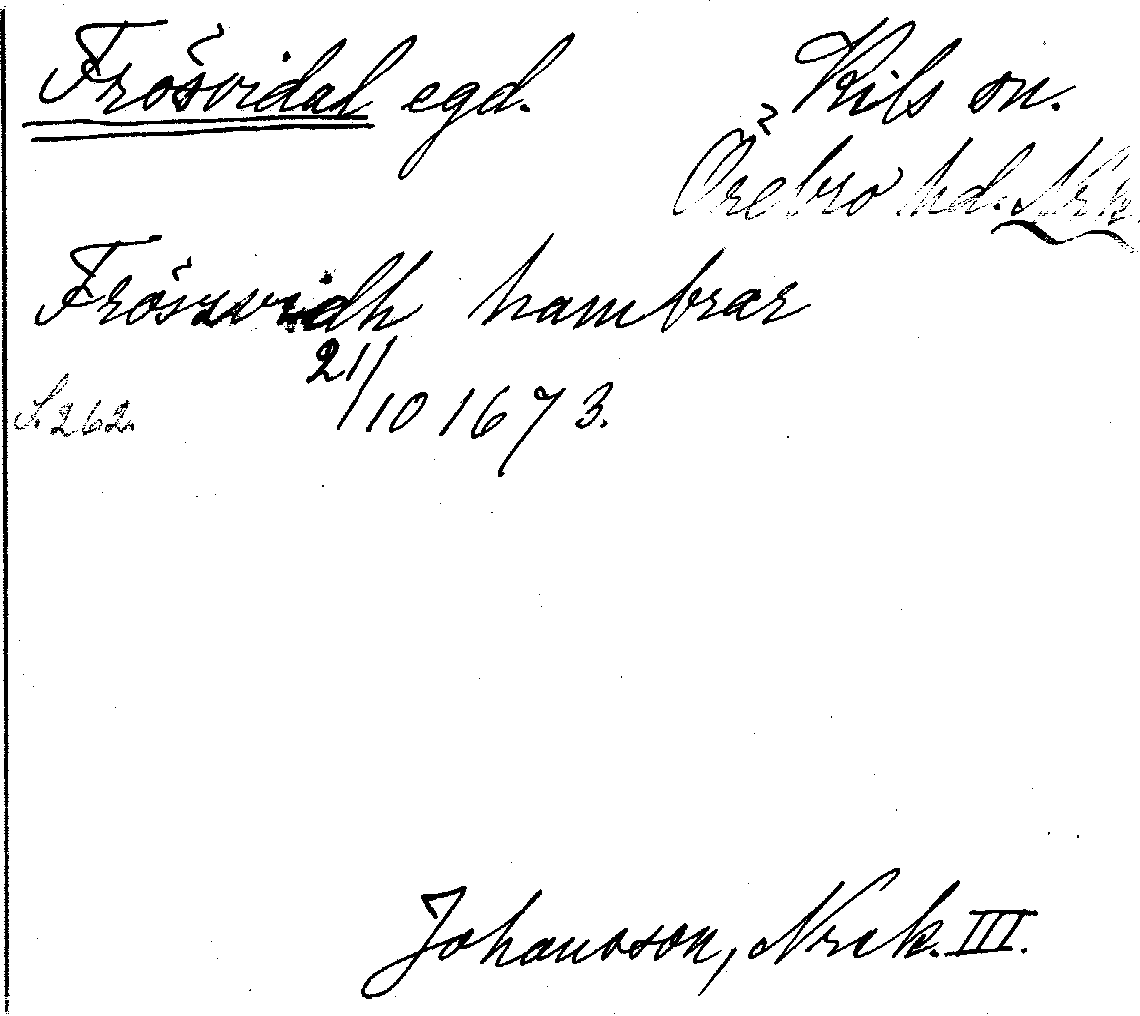 Frösvidal egd. Kils sn.
Örebro hd. Nrk.
Fröszvidh hambrar
S. 262. 21/10 1673.
Johansson, Nrck. III.